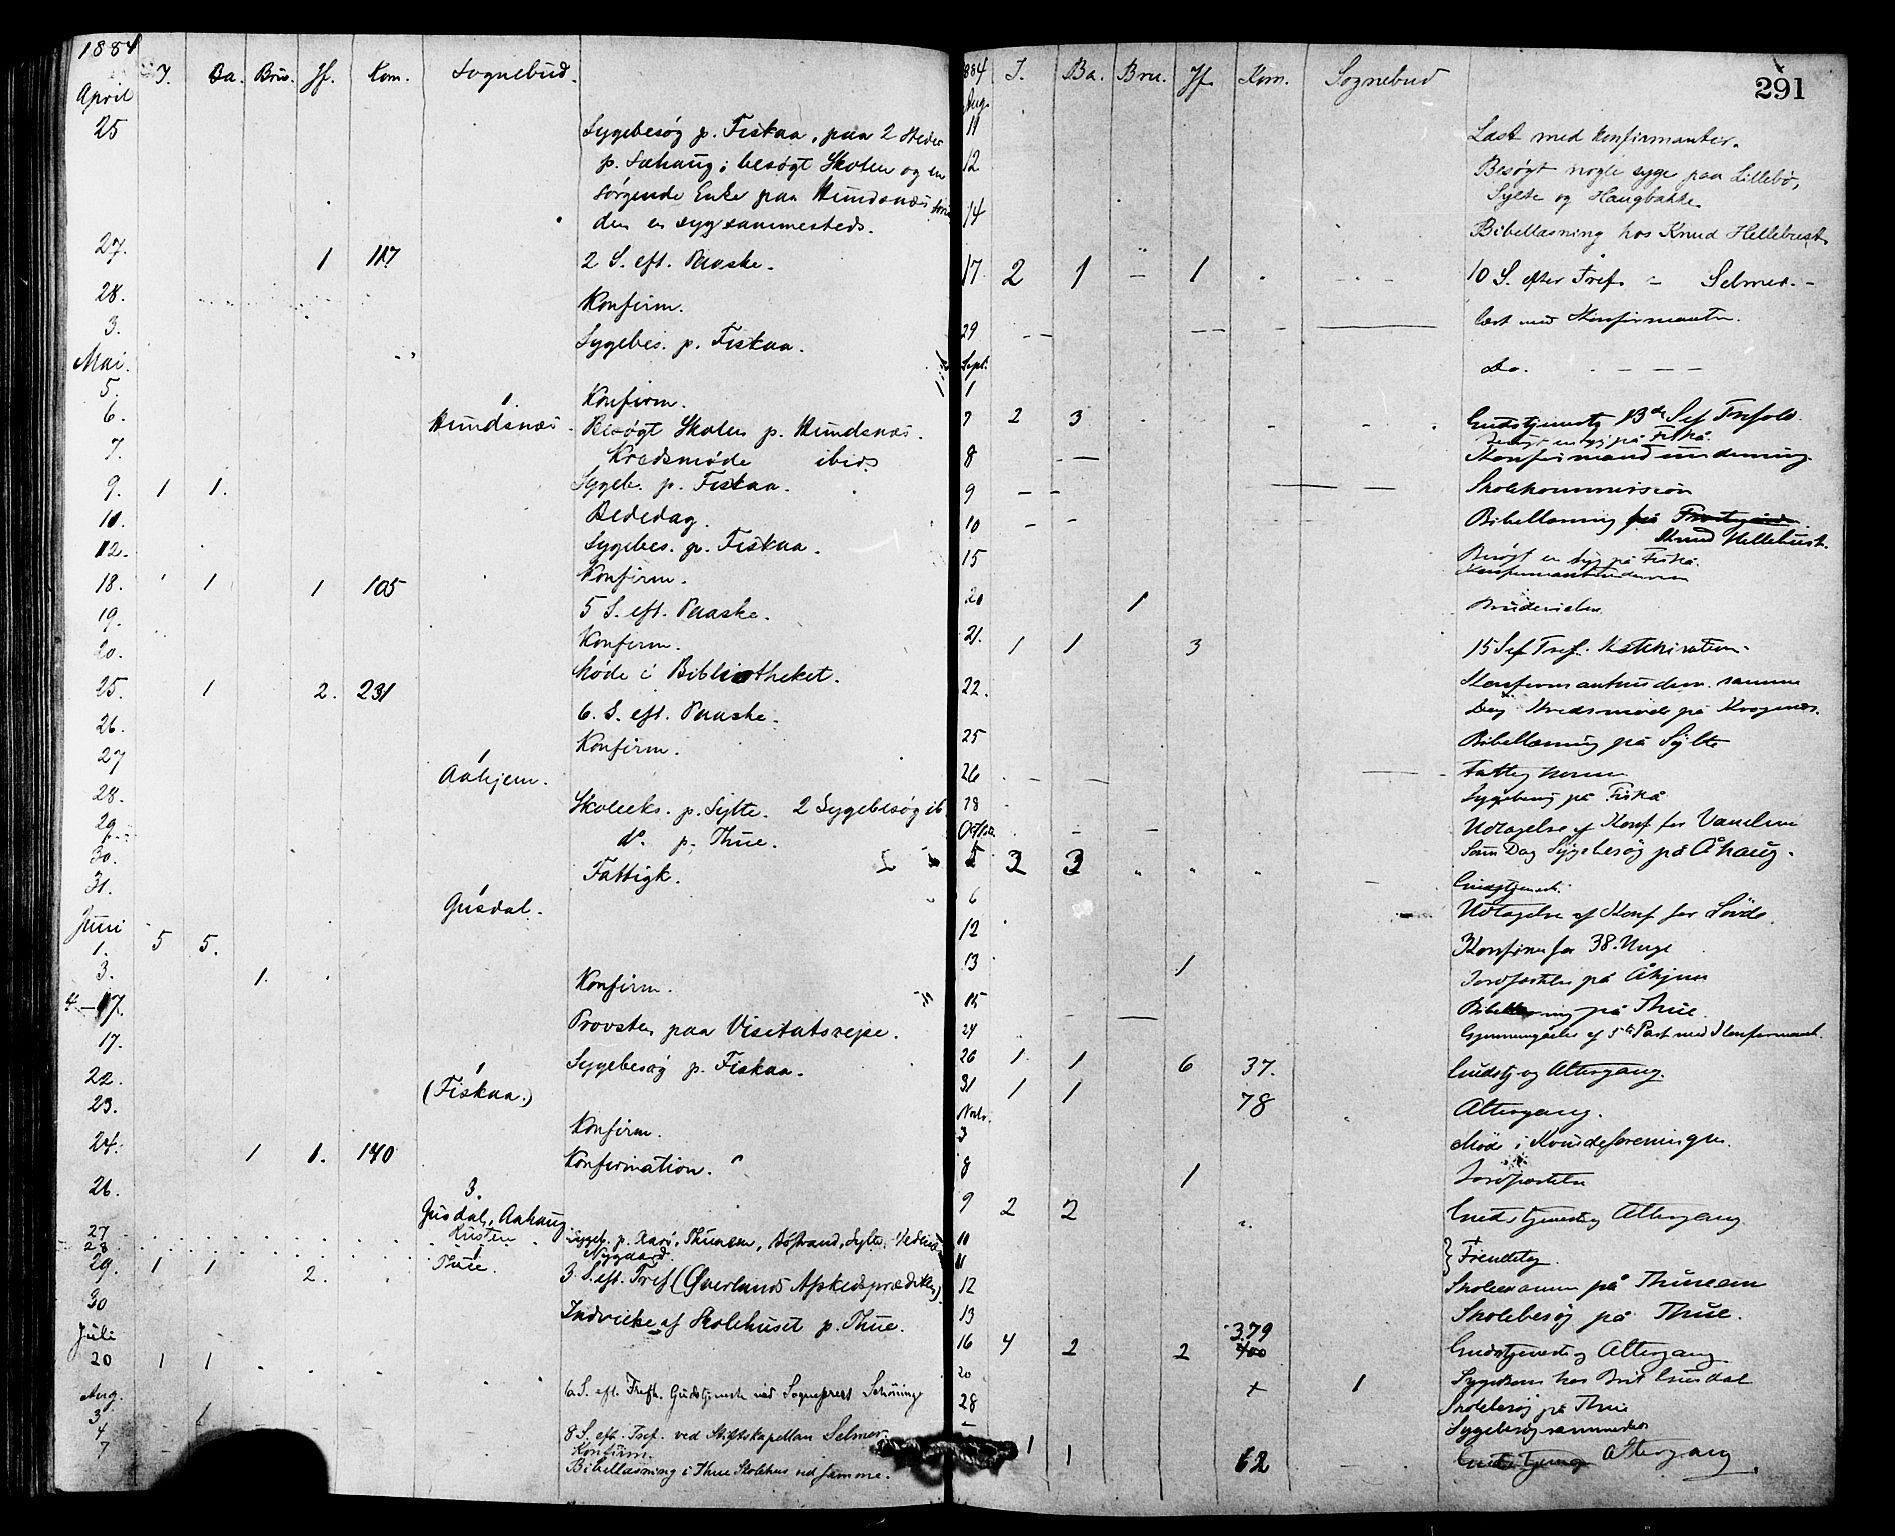 1884
I. Da. Bru. Jf. Kom. Sognebud.
April
25 Sygebesøg p. Fiskaa, paa 2 Steder
p. Aahaug; besøgt Skolen og en
sørgende Enke paa Hundsnæs
den en syg sammesteds.
27. 1 117 2 S. eft. Paaske.
28. Konfirm.
3. Sygebes. p. Fiskaa.
Mai.
5. Konfirm.
6. 1. Hundsnæs. Besøgt Skolen p. Hundsnæs.
7. Kredsmøde ibid
9. 1 1. Sygeb. p. Fiskaa.
10. Bededag.
12. Sygebes. p. Fiskaa.
18. 1 1 105 Konfirm.
19. 5 S. eft. Paaske.
20. Konfirm.
Møde i Bibliotheket.
25. 1 2. 231
6. S. eft. Paaske.
26. Konfirm.
27 1 Aahjem.
28. Skoleeks. p. Sylte. 2 Sygebesøg ib
29. do. p. Thue.
30. Fattigk.
31. 1 Gusdal.
Juni
1. 5 5.
3. 1. Konfirm.
4-17. Provsten paa Visitatsrejse.
17. Sygebesøg p. Fiskaa.
22. 1 (Fiskaa.)
23. Konfirm.
24. 1 1. 140 Konfirmation.
26. 3. Gusdal, Aahaug
27
28 Nygaard
29. 1 1 2. 1 Thue. 3. S. eft. Tref (Øverlands Afskedsprædiken)
30 Indvielse af Skolehuset p. Thue.
Juli
20 1 1 6 S. eft. Trefh. Gudstjeneste ved Sogneprest Schøning
Aug.
3 1 8 S. eft. Tref. ved Stiftskapellan Selmer.
4 Konfirm.
7 Bibellæsning i Thue Skolehus ved samme.
291
884 I. Ba. Bru. Jf. Kom. Sognebud
Aug.
11 Læst med Konfirmanter.
12 Besøgt nogle syge paa Lillebø,
Sylte og Haugbakke
14 Bibellæsning hos Knud Hellebust.
17. 2 1 - 1 10 S. efter Tref. - Selmer. -
29 læst med Konfirmanter.
Sept.
1 Do. - - -
7 2 3 Gudstjeneste 13de S ef Trefold.
Besøgt en syg på Fiskå.
8 Konfirmandundervisning.
9 Skolekommission
10 Bibellæsning på
Knud Hellebust.
15 Besøgt en syg på Fiskå.
20 1 Brudevielse
21. 1 1 3 15 S ef Tref. Katekisation.
22. Konfirmantunderv. samme
Dag Kredsmøde på Krogenæs.
25 Bibellæsning på Sylte
26
28 Sygebesøg på Fiskå
Oktbr. Udtagelse af Konf for Vanelven
5 3 3 Søm Dag Sygebesøg på Åhaug.
Gudstjeneste.
6 Udtagelse af Konf for Søvde
12 Konfirm for 38. Unge
13 1 Jordfæstelse på Åhjem
15 Bibellæsning på Thue.
24
26 1. 1 6 37. Gudstj og Altergang.
31 1 1 78 Altergang.
Novbr.
3 Møde i Kvindeforeningen.
8 1 Jordfæstelse
9 2 2 Gudstjeneste og Altergang
10
11
12 Skoleexamen på Thuneem
13 Skolebesøg på Thue.
16 4 2 2 379 400 Gudstjeneste og Altergang
20 + 1 Sygekom hos Brit Gusdal
28 Skolebesøg på Thue
Sygebesøg sammesteds
1 1 62 Altergang